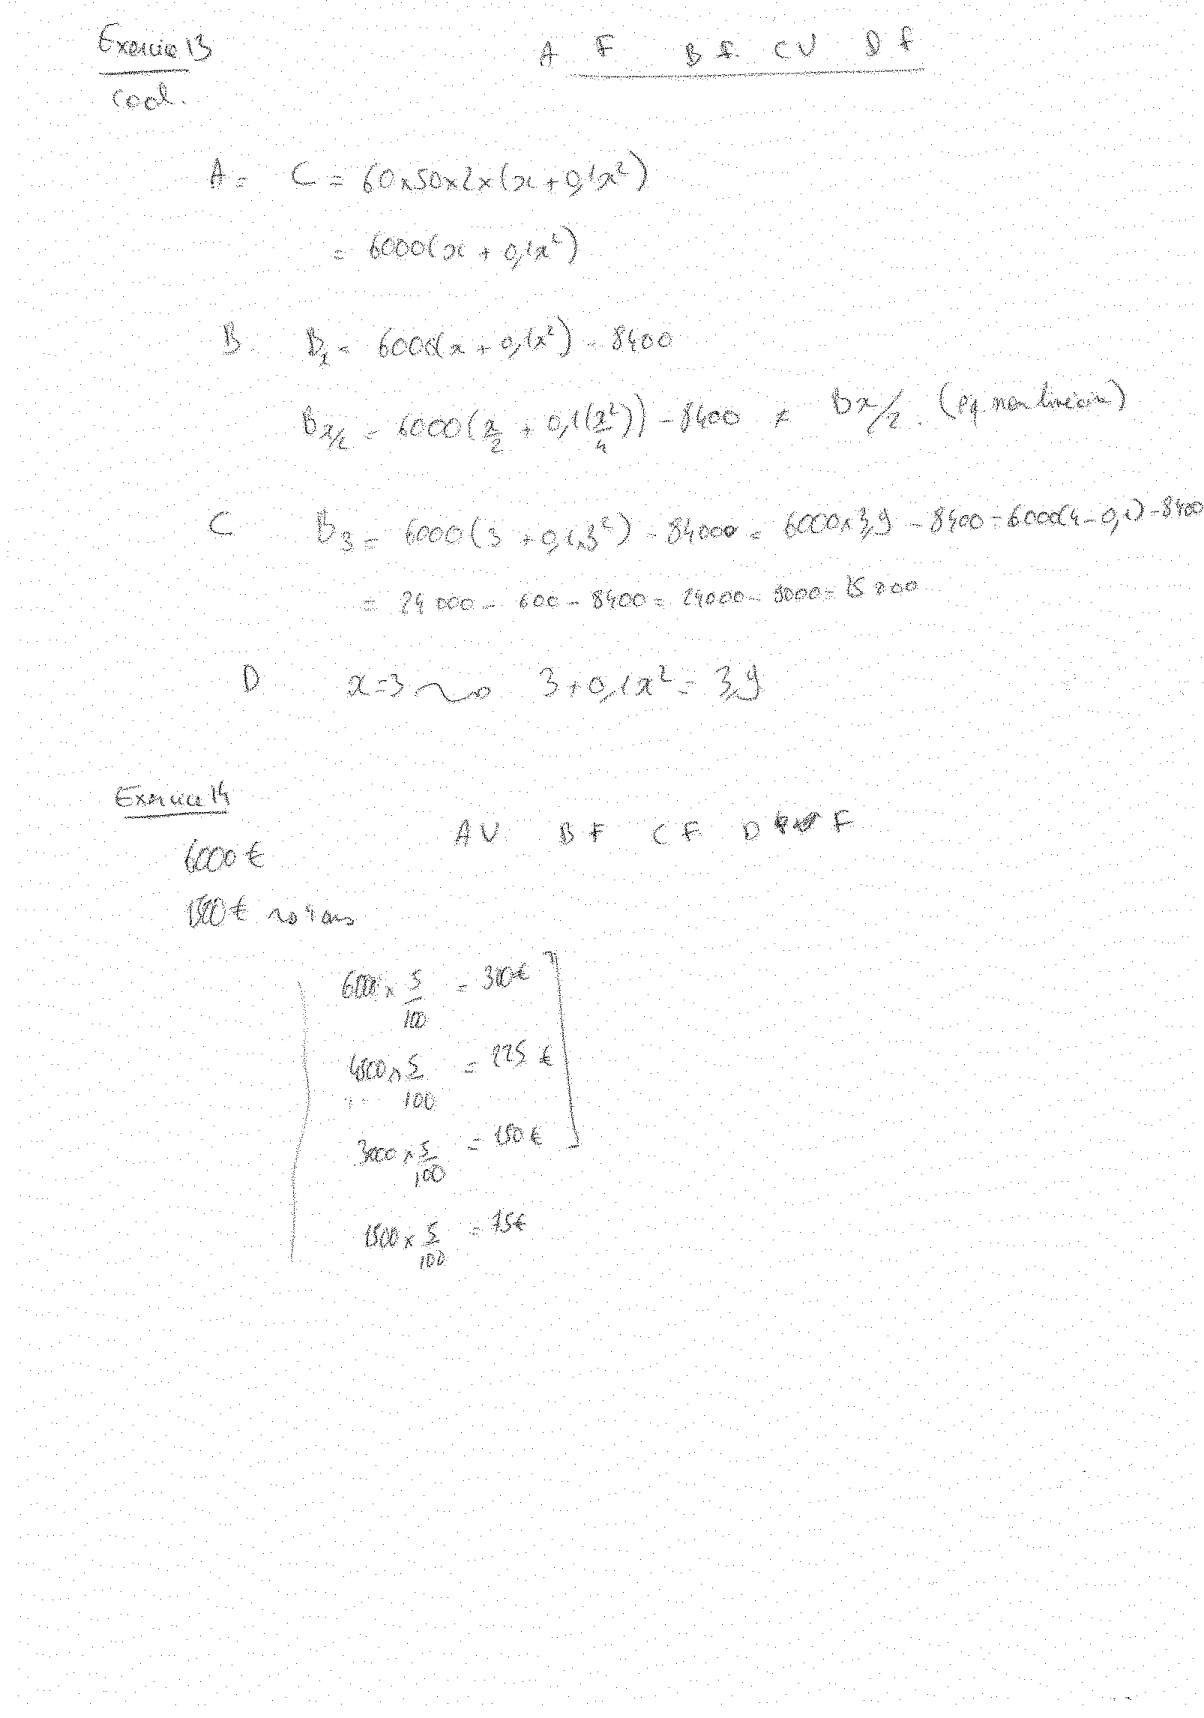 Exercice 13
A F B F. C V D F
cool.
A = C = 60x50x2x(x + 0,1x²)
= 6000(x + 0,1x²)
B Bx = 6000(x + 0,1x²) - 8400
Bx/2 = 6000(x/2 + 0,1(x²/4)) - 8400 ≠ Bx/2. (eq non linéaire)
C B3 = 6000(3 + 0,1x3²) - 84000 = 6000x3,9 - 8400 = 6000(4-0,1) - 8400
= 24 000 - 600 - 8400 = 24000 - 9000 = 15 000
D x=3 ~> 3 + 0,1x² = 3,9
Exercice 14
A V B F C F D F
6000 €
1500 € ~> 4 ans
6000 x 5/100 = 300 €
4500 x 5/100 = 225 €
3000 x 5/100 = 150 €
1500 x 5/100 = 75 €